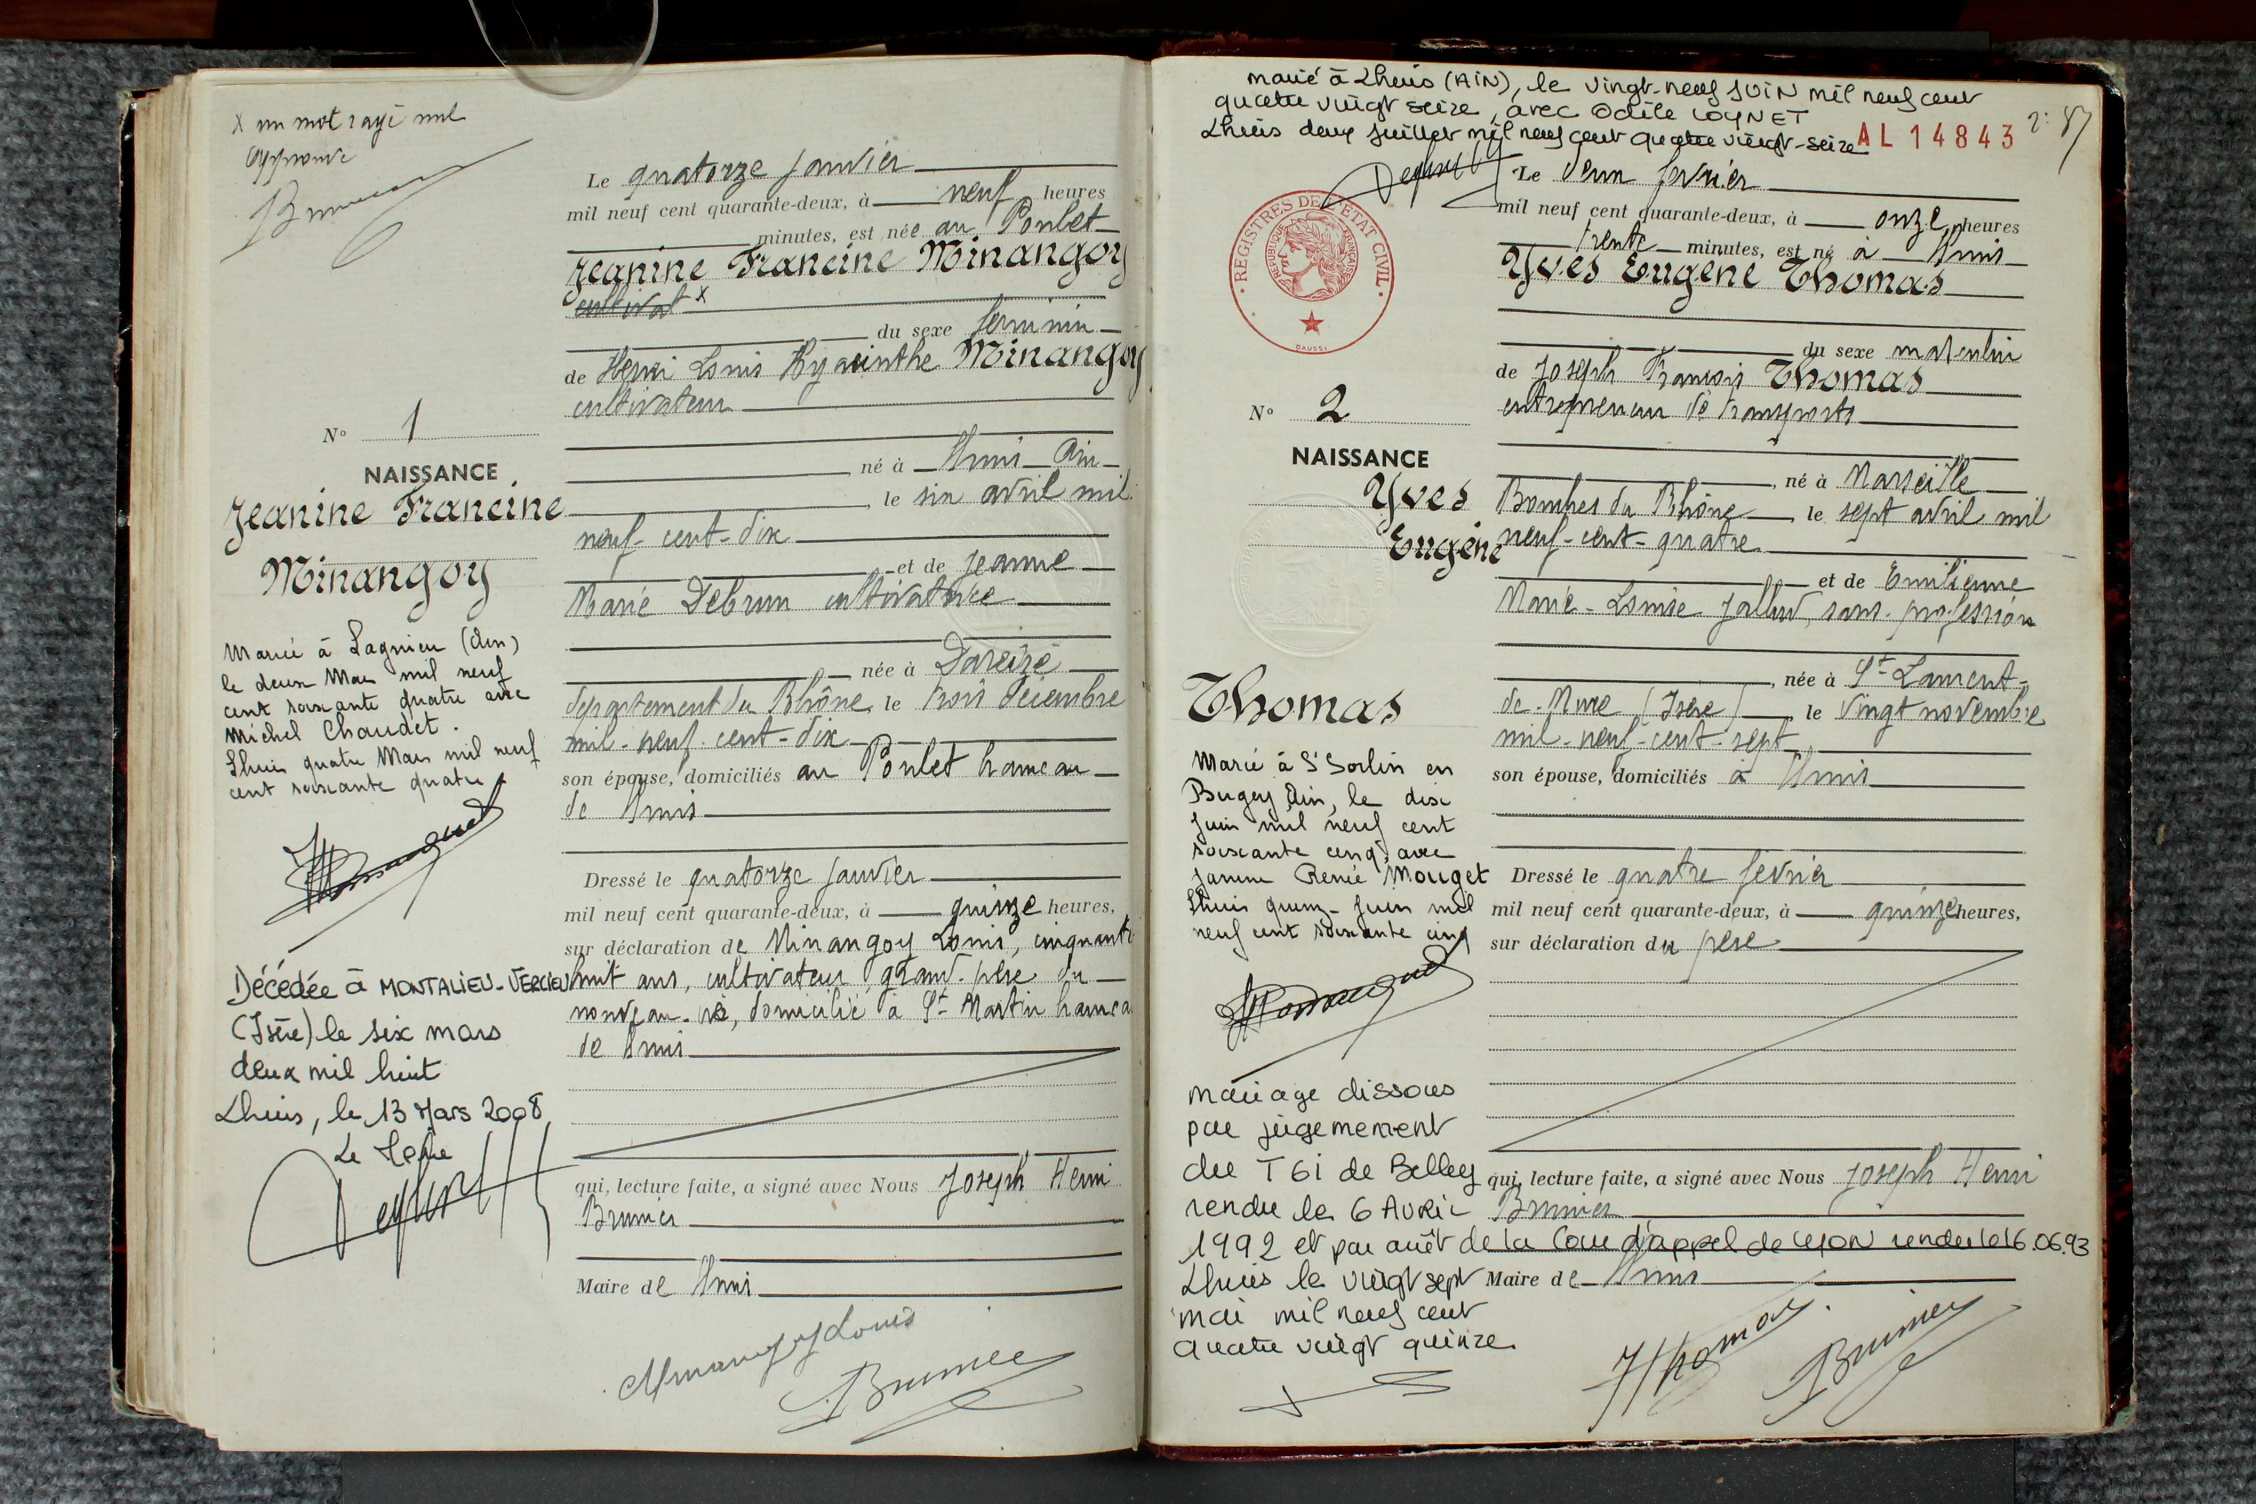 x un mot rayé nul
approuvé
Brunier
Le quatorze janvier
mil neuf cent quarante-deux, à neuf heures
minutes, est née au Poulet
Jeanine Francine Minangoy
cultivat x
du sexe féminin
de Henri Louis Hyacinthe Minangoy
cultivateur
né à Lhuis Ain
le six avril mil
neuf-cent-dix
et de Jeanne
Marie Debrun cultivatrice
née à Dareizé
département du Rhône le trois décembre
mil-neuf-cent-dix
son épouse, domiciliés au Poulet hameau
de Lhuis
Dressé le quatorze janvier
mil neuf cent quarante-deux, à quinze heures,
sur déclaration de Minangoy Louis, cinquante
huit ans, cultivateur, grand-père du
nouveau-né, domicilié à St Martin hameau
de Lhuis
qui, lecture faite, a signé avec Nous Joseph Henri
Brunier
Maire de Lhuis
Minangoy Louis
Brunier
No 1
NAISSANCE
Jeanine Francine
Minangoy
Marié à Lagnieu (Ain)
le deux Mai mil neuf
cent soixante quatre avec
Michel Chaudet.
Lhuis quatre Mai mil neuf
cent soixante quatre
Décédée à MONTALIEU-VERCIEU
(Isère) le six mars
deux mil huit
Lhuis, le 13 Mars 2008
Le Maire
marié à Lhuis (AIN), le vingt-neuf JUIN mil neuf cent
quatre vingt seize, avec Odile LOYNET
Lhuis deux juillet mil neuf cent quatre vingt-seize
AL 14843
Le deux février
mil neuf cent quarante-deux, à onze heures
trente minutes, est né à Lhuis
Yves Eugène Thomas
du sexe masculin
de Joseph François Thomas
entrepreneur de transports
né à Marseille
Bouches du Rhône, le sept avril mil
neuf-cent-quatre
et de Emilienne
Marie-Louise Jallud, sans profession
née à St Laurent-
de-Mure (Isère), le vingt novembre
mil-neuf-cent-sept
son épouse, domiciliés à Lhuis
Dressé le quatre février
mil neuf cent quarante-deux, à quinze heures,
sur déclaration du père
qui, lecture faite, a signé avec Nous Joseph Henri
Brunier
Maire de Lhuis
JThomas
Brunier
REGISTRES DE L'ETAT CIVIL
REPUBLIQUE FRANÇAISE
DAUSSI
No 2
NAISSANCE
Yves
Eugène
Thomas
Marié à St Sorlin en
Bugey Ain, le dix
juin mil neuf cent
soixante cinq, avec
Janine Renée Mouget
Lhuis quinze juin mil
neuf cent soixante cinq
mariage dissous
par jugement
du TGi de Belley
rendu le 6 AVRIL
1992 et par arrêt de la Cour d'appel de LYON rendu le 16.06.93
Lhuis le vingt sept
mai mil neuf cent
quatre vingt quinze